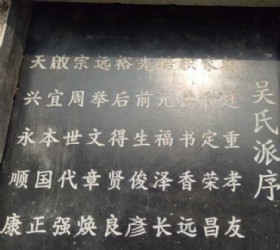 吴氏派序
廷重孝友
家定荣昌
书香远
培元福泽长
前生俊彦
裕后得贤良
远举文章焕
宗周世代强
啟宜本国正
天兴永顺康